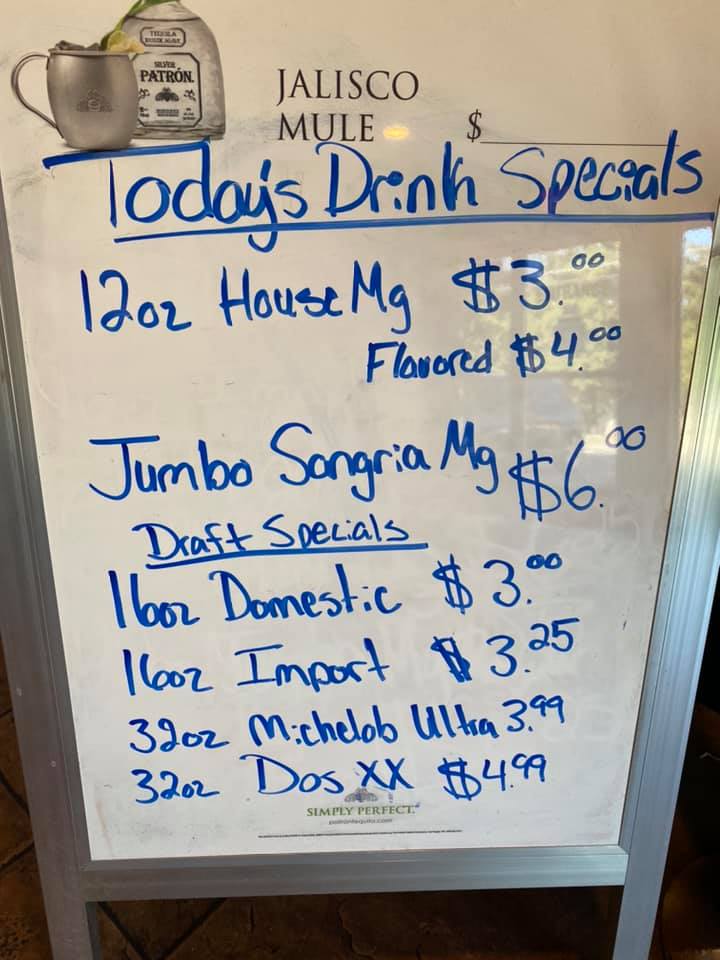 TEQUILA
SILVER
PATRÓN.
JALISCO
MULE $
Today's Drink Specials
12oz House Mg $3.00
Flavored $4.00
Jumbo Sangria Mg $6.00
Draft Specials
16oz Domestic $3.00
16oz Import $3.25
32oz Michelob Ultra 3.99
32oz Dos XX $4.99
SIMPLY PERFECT.
patrontequila.com